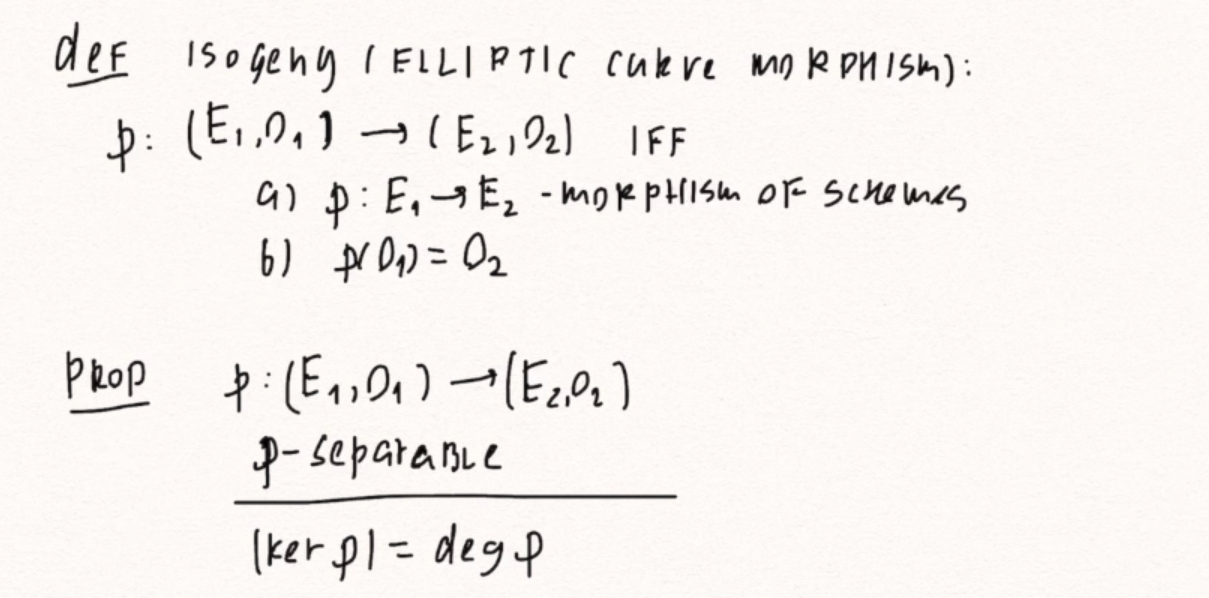 def Isogeny (ELLIPTIC curve morphism):
p: (E₁,O₁) → (E₂,O₂) IFF
a) p: E₁→E₂ - morphism of schemes
b) p(O₁) = O₂
Prop p:(E₁,O₁) → (E₂,O₂)
p-separable
|ker p| = deg p